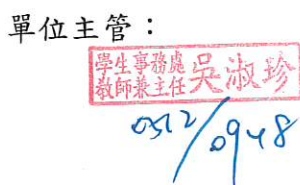 單位主管：
學生事務處
教師兼主任 吳淑珍
0512/0948